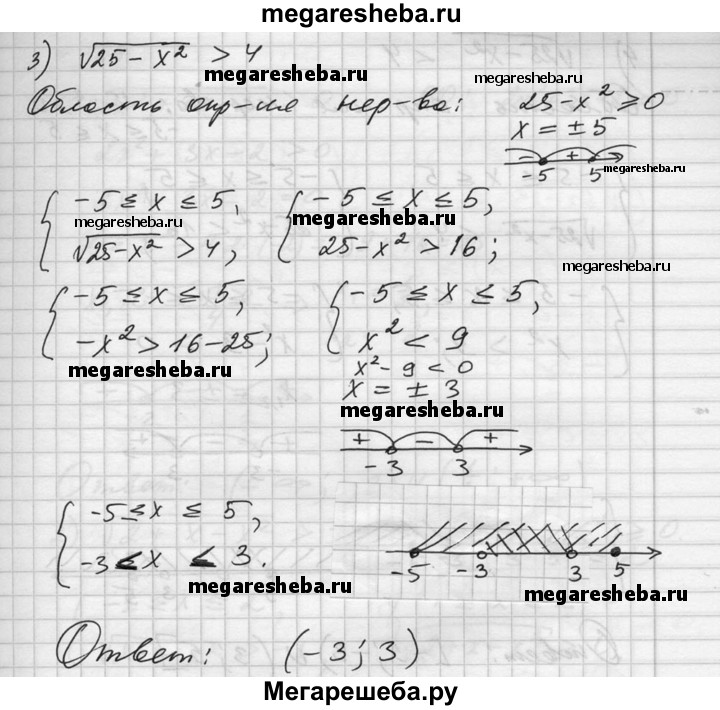 megaresheba.ru
3) √25 - x² > 4
megaresheba.ru
megaresheba.ru
Область опр-ия нер-ва: 25 - x² ≥ 0
x = ± 5
- + -
-5 5
megaresheba.ru
{ -5 ≤ x ≤ 5, { -5 ≤ x ≤ 5,
megaresheba.ru megaresheba.ru
√25 - x² > 4, 25 - x² > 16;
megaresheba.ru
{ -5 ≤ x ≤ 5, { -5 ≤ x ≤ 5,
-x² > 16 - 25; x² < 9
megaresheba.ru
x² - 9 < 0
x = ± 3
megaresheba.ru
+ - +
-3 3
{ -5 ≤ x ≤ 5,
-3 < x < 3.
-5 -3 3 5
megaresheba.ru
megaresheba.ru
Ответ: (-3; 3)
Мегарешеба.ру